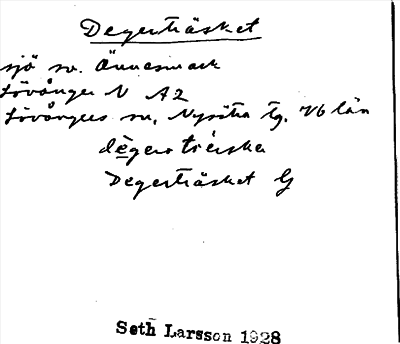 Degerträsket
sjö sv. Ännesmark
Lövånger N A2
Lövångers sn, Nysätra tg. Vb län
dègerotrèska
Degerträsket G
Seth Larsson 1928